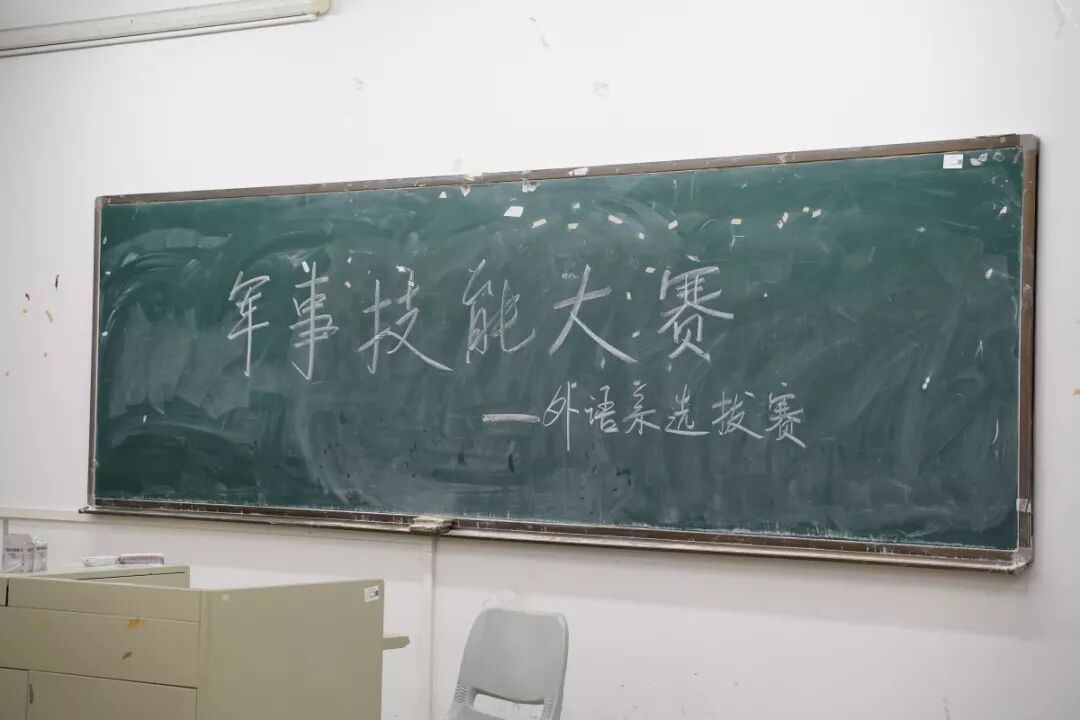 军事技能大赛
—外语系选拔赛